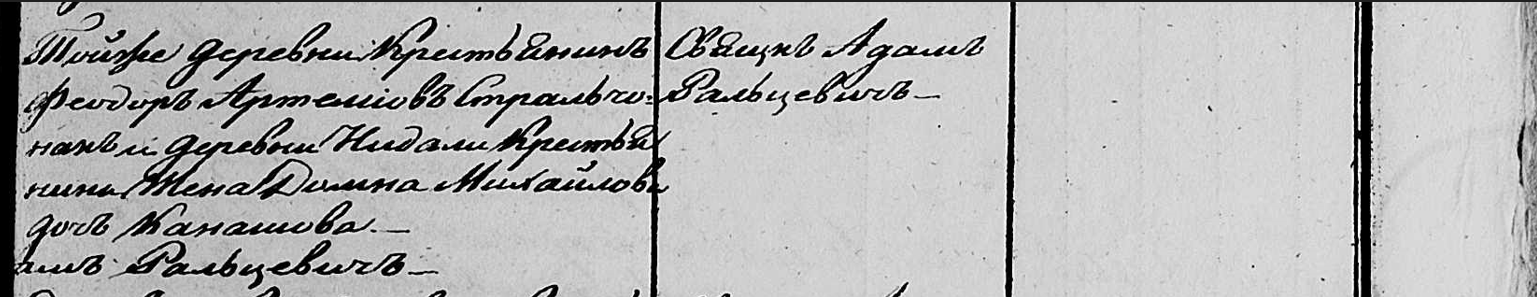 Тойже деревни Крестьянинъ
Феодоръ Артемiовъ Стральчо=
накъ и деревни Нидали Крестья
нина Жена Домна Михайлова
дочь Канашова. —
амъ Ральцевичъ —
Свящнъ Адамъ
Ральцевичъ —